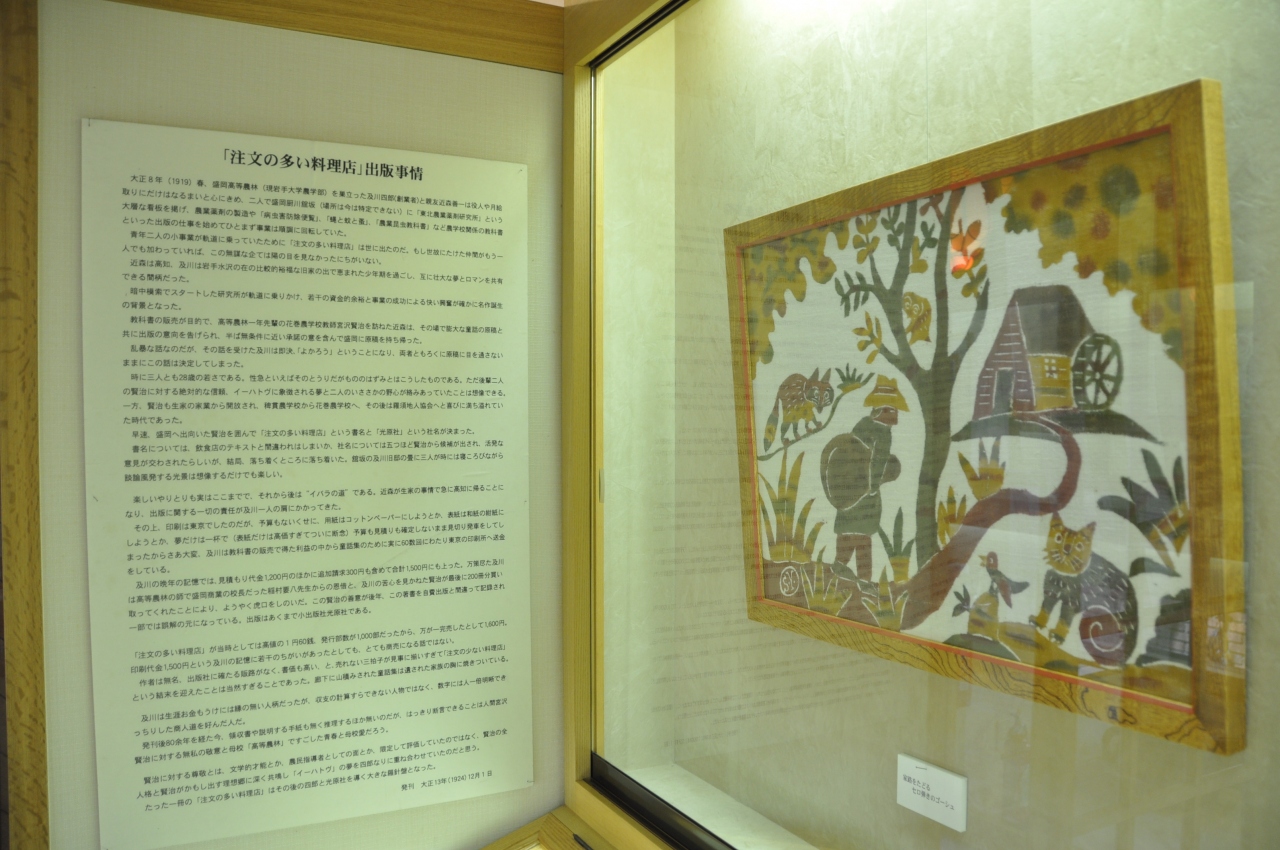 「注文の多い料理店」出版事情
大正8年（1919）春、盛岡高等農林（現岩手大学農学部）を巣立った及川四郎(創業者)と親友近森善一は役人や月給
取りにだけはなるまいと心にきめ、二人で盛岡厨川舘坂（場所は今は特定できない）に「東北農業薬剤研究所」という
大層な看板を掲げ、農業薬剤の製造や「病虫害防除便覧」、「蠅と蚊と蚤」、「農業昆虫教科書」など農学校関係の教科書
といった出版の仕事を始めてひとまず事業は順調に回転していた。
青年二人の小事業が軌道に乗っていたために「注文の多い料理店」は世に出たのだ。もし世故にたけた仲間がもう一
人でも加わっていれば、この無謀な企ては陽の目を見なかったにちがいない。
近森は高知、及川は岩手水沢の在の比較的裕福な旧家の出で恵まれた少年期を過ごし、互に壮大な夢とロマンを共有
できる間柄だった。
暗中模索でスタートした研究所が軌道に乗りかけ、若干の資金的余裕と事業の成功による快い興奮が確かに名作誕生
の背景となった。
教科書の販売が目的で、高等農林一年先輩の花巻農学校教師宮沢賢治を訪ねた近森は、その場で膨大な童話の原稿と
共に出版の意向を告げられ、半ば無条件に近い承諾の意を含んで盛岡に原稿を持ち帰った。
乱暴な話なのだが、その話を受けた及川は即決、「よかろう」ということになり、両者ともろくに原稿に目を通さない
ままにこの話は決定してしまった。
時に三人とも28歳の若さである。性急といえばそのとうりだがもののはずみとはこうしたものである。ただ後輩二人
の賢治に対する絶対的な信頼、イーハトヴに象徴される夢と二人のいささかの野心が絡みあっていたことは想像できる。
一方、賢治も生家の家業から開放され、稗貫農学校から花巻農学校へ、その後は羅須地人協会へと喜びに満ち溢れてい
た時代であった。
早速、盛岡へ出向いた賢治を囲んで「注文の多い料理店」という書名と「光原社」という社名が決まった。
書名については、飲食店のテキストと間違われはしまいか、社名については五つほど賢治から候補が出され、活発な
意見が交わされたらしいが、結局、落ち着くところに落ち着いた。舘坂の及川旧邸の畳に三人が時には寝ころびながら
談論風発する光景は想像するだけでも楽しい。
楽しいやりとりも実はここまでで、それから後は“イバラの道”である。近森が生家の事情で急に高知に帰ることに
なり、出版に関する一切の責任が及川一人の肩にかかってきた。
その上、印刷は東京でしたのだが、予算もないくせに、用紙はコットンペーパーにしようとか、表紙は和紙の紺紙に
しようとか、夢だけは一杯で（表紙だけは高価すぎてついに断念）予算も見積りも確定しないまま見切り発車をしてし
まったからさあ大変、及川は教科書の販売で得た利益の中から童話集のために実に60数回にわたり東京の印刷所へ送金
をしている。
及川の晩年の記憶では、見積もり代金1,200円のほかに追加請求300円も含めて合計1,500円にも上った。万策尽きた及川
は高等農林の師で盛岡商業の校長だった稲村要八先生からの恩借と、及川の苦心を見かねた賢治が最後に200冊分買い
取ってくれたことにより、ようやく虎口をしのいだ。この賢治の善意が後年、この著書を自費出版と間違って記録され
一部では誤解の元になっている。出版はあくまで小出版社光原社である。
「注文の多い料理店」が当時としては高値の1円60銭、発行部数が1,000部だったから、万が一完売したとして1,600円。
印刷代金1,500円という及川の記憶に若干のちがいがあったとしても、とても商売になる話ではない。
作者は無名、出版社に確たる販路がなく、書価も高い、と、売れない三拍子が見事に揃いすぎて「注文の少ない料理店」
という結末を迎えたことは当然すぎることであった。廊下に山積みされた童話集は遺された家族の胸に焼きついている。
及川は生涯お金もうけには縁の無い人柄だったが、収支の計算すらできない人物ではなく、数字には人一倍明晰でき
っちりした商人道を好んだ人だ。
発刊後80余年を経た今、領収書や説明する手紙も無く推理するほか無いのだが、はっきり断言できることは人間宮沢
賢治に対する無私の敬意と母校「高等農林」ですごした青春と母校愛だろう。
賢治に対する尊敬とは、文学的才能とか、農民指導者としての面とか、限定して評価していたのではなく、賢治の全
人格と賢治がかもし出す理想郷に深く共鳴し「イーハトヴ」の夢を四郎なりに重ね合わせていたのだと思う。
たった一冊の「注文の多い料理店」はその後の四郎と光原社を導く大きな羅針盤となった。
発刊　大正13年(1924)12月1日
家路をたどる
セロ弾きのゴーシュ